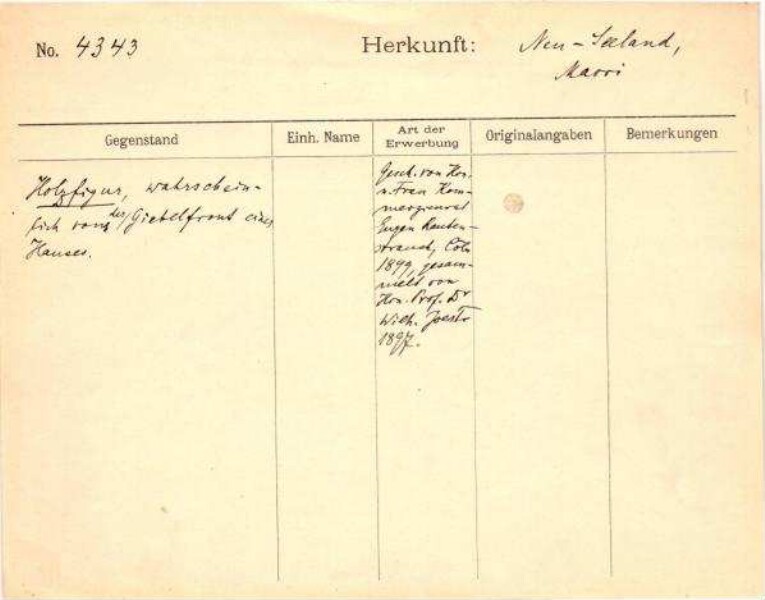 No. 4343 Herkunft: Neu-Seeland,
Maori
Gegenstand Einh. Name Art der Erwerbung Originalangaben Bemerkungen
Holzfigur, wahrschein-
lich von der Giebelfront eines
Hauses.
Gesch. von Hrn.
u. Frau Kom-
merzienrat
Eugen Rauten-
strauch, Cöln
1899, gesam-
melt von
Hrn. Prof. Dr
Wilh. Joest
1897.